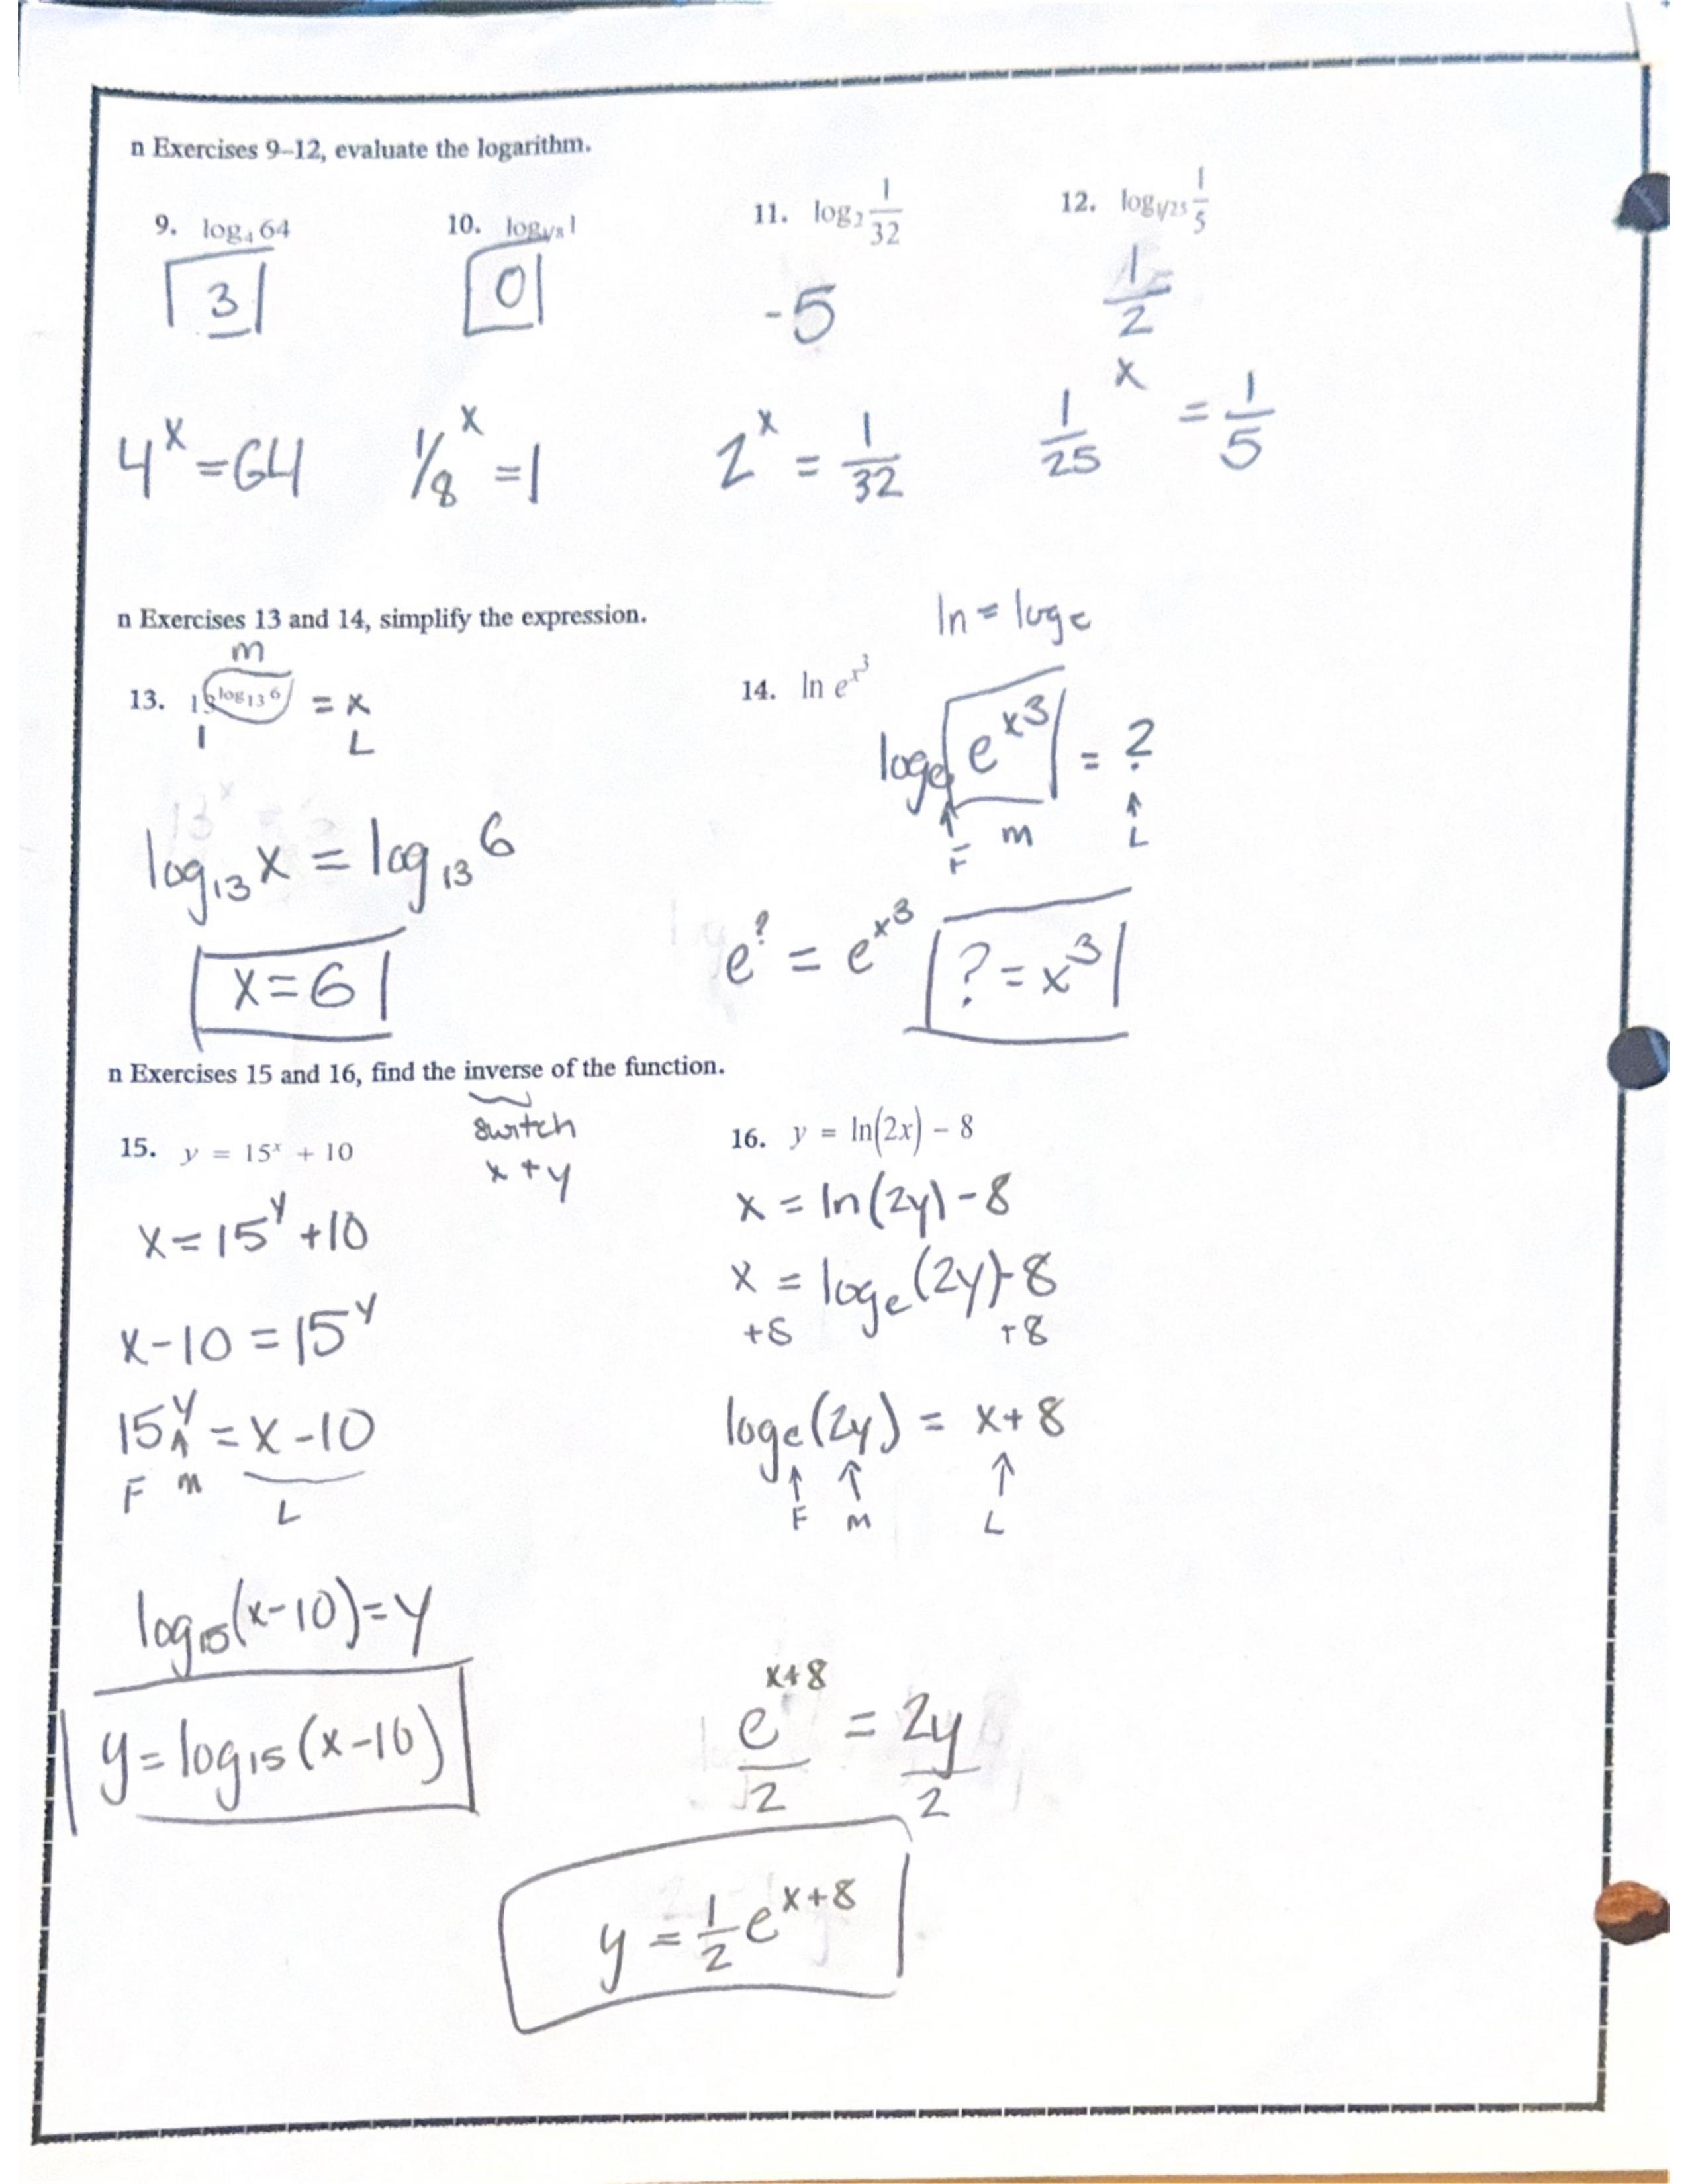 n Exercises 9–12, evaluate the logarithm.
9. log₄ 64
10. log₁/₈ 1
11. log₂ 1/32
12. log₁/₂₅ 1/5
3
0
-5
1/2
4^x = 64
1/8^x = 1
2^x = 1/32
1/25^x = 1/5
n Exercises 13 and 14, simplify the expression.
ln = log e
m
13. 13^(log₁₃ 6) = x
L
14. ln e^(x³)
log e e^(x³) = ?
F m L
log₁₃ x = log₁₃ 6
x = 6
e^? = e^(x³)
? = x³
n Exercises 15 and 16, find the inverse of the function.
switch
x + y
15. y = 15^x + 10
x = 15^y + 10
x - 10 = 15^y
15^y = x - 10
F m L
log₁₅(x-10) = y
y = log₁₅(x-10)
16. y = ln(2x) – 8
x = ln(2y) - 8
x = log e (2y) - 8
+8 +8
log e (2y) = x + 8
F m L
e^(x+8) = 2y
2 2
y = 1/2 e^(x+8)